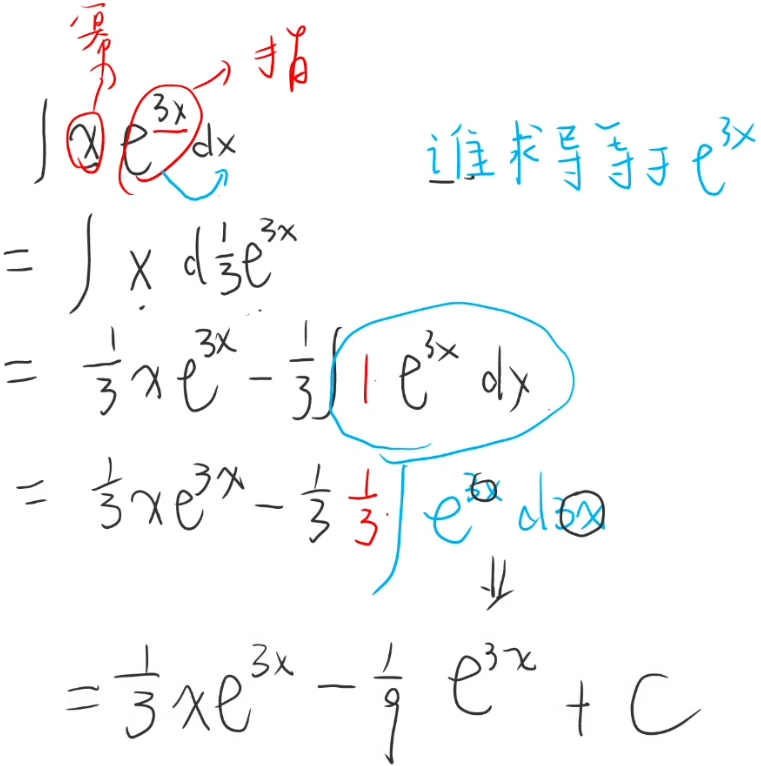 幂
指
∫ x e^{3x} dx
谁求导等于 e^{3x}
= ∫ x d \frac{1}{3} e^{3x}
= \frac{1}{3} x e^{3x} - \frac{1}{3} ∫ 1 e^{3x} dx
= \frac{1}{3} x e^{3x} - \frac{1}{3} \frac{1}{3} ∫ e^{3x} d3x
⇓
= \frac{1}{3} x e^{3x} - \frac{1}{9} e^{3x} + C